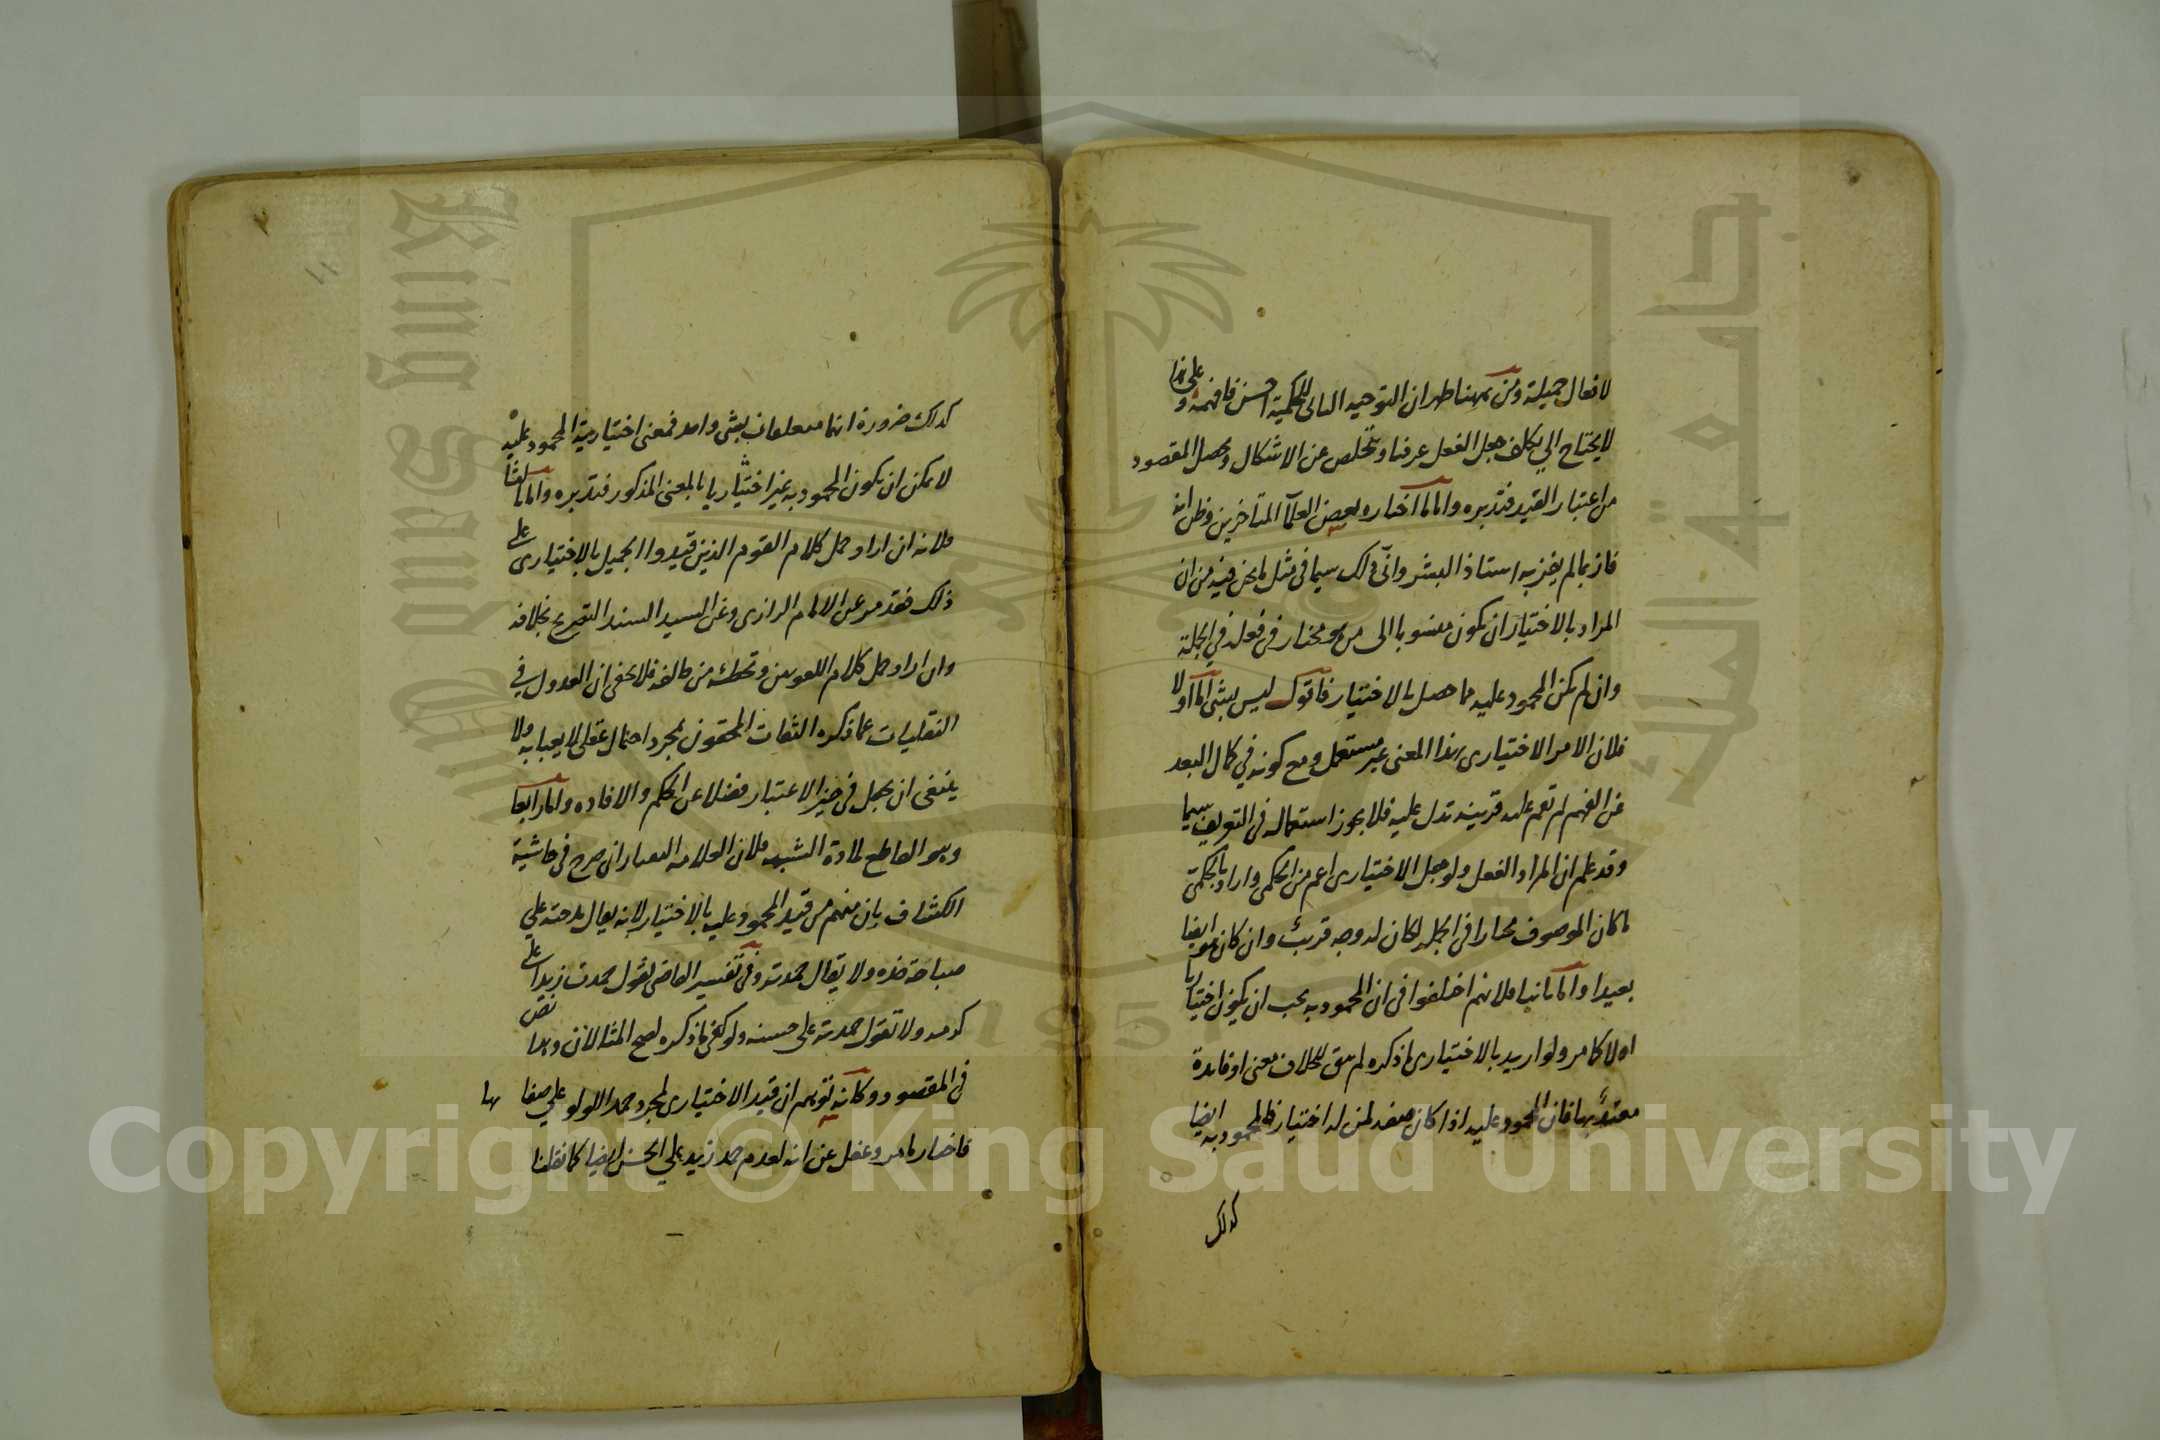 لافعال جميلة ومن ههنا ظهر ان التوجيه الثاني للحكمية احسن فافهمه وعلى هذا
لا يحتاج الى تكلف جعل الفعل عرفيا وتخلص عن الاشكال ويحصل المقصود
من اعتبار القيد فتدبره واما ما اختاره بعض العلماء المتاخرين وظن انه
فاز بما لم يفز به استاذ البشر وانى ذلك سيما في مثل ما نحن فيه من ان
المراد بالاختيار ان يكون منسوبا الى من هو مختار في فعله في الجملة
وان لم يكن المحمود عليه مما حصل بالاختيار فاقول ليس بشئ اما اولا
فلان الامر الاختيارى بهذا المعنى غير مستعمل ومع كونه في كمال البعد
عن الفهم لم تقم عليه قرينة تدل عليه فلا يجوز استعماله في التعريف سيما
وقد علم ان المراد الفعل ولو جعل الاختيارى اعم من الحكمى واراد بالحكمى
ما كان الموصوف مختارا في الجملة لكان له وجه قريب وان كان هو ايضا
بعيدا واما ثانيا فلانهم اختلفوا في ان المحمود به يجب ان يكون اختياريا
اولا كما مر ولو اريد بالاختيارى ما ذكره لم يبق للخلاف معنى او فايدة
معتد بها فان المحمود عليه اذا كان صفة لمن له اختيار فالمحمود به ايضا
كذلك
كذلك ضرورة انهما متعلقان بشئ واحد فمعنى اختيارية المحمود عليه
لا يمكن ان يكون المحمود به غير اختياريا بالمعنى المذكور فتدبره واما ثالثا
فلانه ان اراد حمل كلام القوم الذين قيدوا الجميل بالاختيارى على
ذلك فقد مر عن الامام الرازى وعن السيد السند التصريح بخلافه
وان اراد حمل كلام اللغويين وتخطئة من خالفه فلا يخفى ان العدول في
النقليات عما ذكره الثقات المحققون بمجرد احتمال عقلى لا يعبا به ولا
ينبغى ان يجعل في حيز الاعتبار فضلا عن الحكم والافاده واما رابعا
وهو القاطع لمادة الشبهه فلان العلامه التفتازانى صرح في حاشية
الكشاف بان منهم من قيد المحمود عليه بالاختيار لانه يقال مدحته على
صباحة خده ولا يقال حمدته وفي تفسير القاضى تقول حمدت زيدا على
كرمه ولا تقول حمدته على حسنه ولو كفى ما ذكره لصح المثالان وهما نص
في المقصود وكانه توهم ان قيد الاختيارى لمجرد حمد اللولو على صفا ئها
فاختار ما مر وغفل عن انه لعدم حمد زيد على الحسن ايضا كما نقلنا
Copyright © King Saud University
King Saud University
جامعة الملك
1957